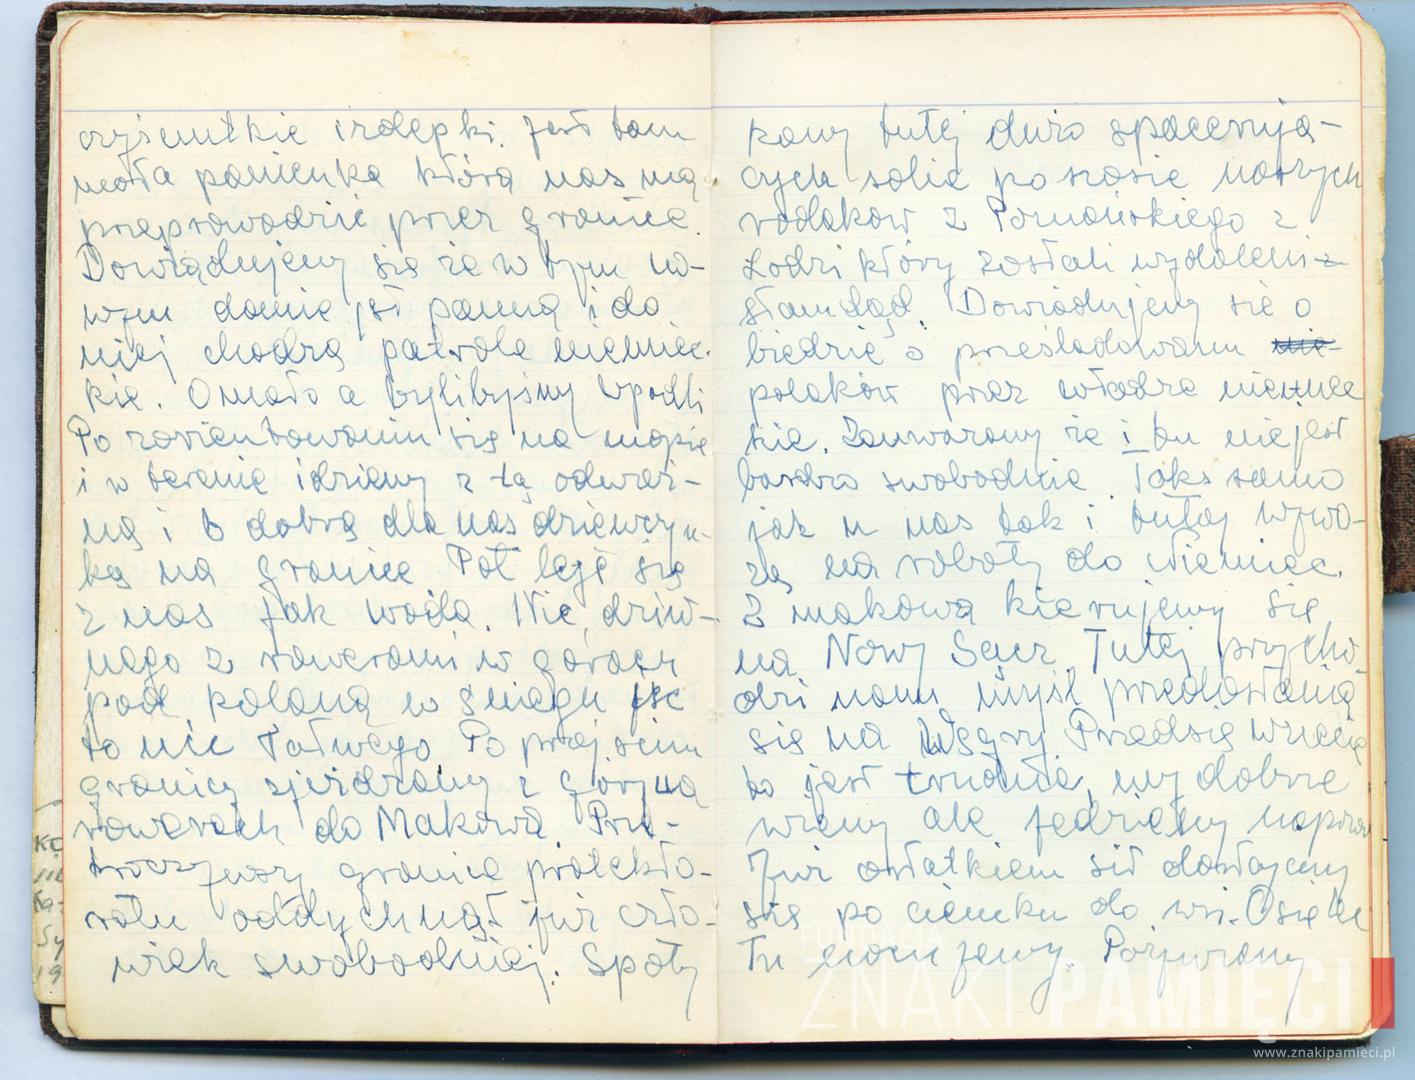 czyściutkie i zlepki. Jest tam
mała panienka która nas ma
przeprowadzić przez granicę.
Dowiadujemy się że w tym no-
wym domie jest panna i do
niej chodzą patrole niemiec-
kie. O mało a bylibyśmy wpadli
Po zorientowaniu się na mapie
i w terenie idziemy z tą odważ-
ną i b dobrą dla nas dziewczyn-
ką na granicę Pot leje się
z nas jak woda. Nic dziw-
nego z rowerami w górach
pod kolana w śniegu iść
to nic łatwego Po przejściu
granicy zjeżdżamy z góry na
rowerach do Makowa Prze-
kroczywszy granicę protekto-
ratu oddychnął już czło-
wiek swobodniej. Spoty
kamy tutej dużo spacerują-
cych sobie po szosie naszych
rodaków z Poznańskiego z
Łodzi który zostali wydaleni z
stamdąd. Dowiadujemy się o
biedzie o prześladowaniu nie-
polaków przez władze niemiec
kie. Zauważamy że i tu niejest
bardzo swobodnie Tak samo
jak u nas tak i tutaj wywo-
żą na roboty do Niemiec.
Z makowa kierujemy się
na Nowy Sącz. Tutej przycho-
dzi nam myśl przedostania
się na Węgry Przedsięwzięcie
to jest trudnie, my dobrze
wiemy ale jedziemy naprzód
Już ostatkiem sił dostajemy
się po ciemku do wsi-Osielec
Tu nocujemy. Pożywiamy
FUNDACJA
ZNAKI PAMIĘCI
www.znakipamieci.pl